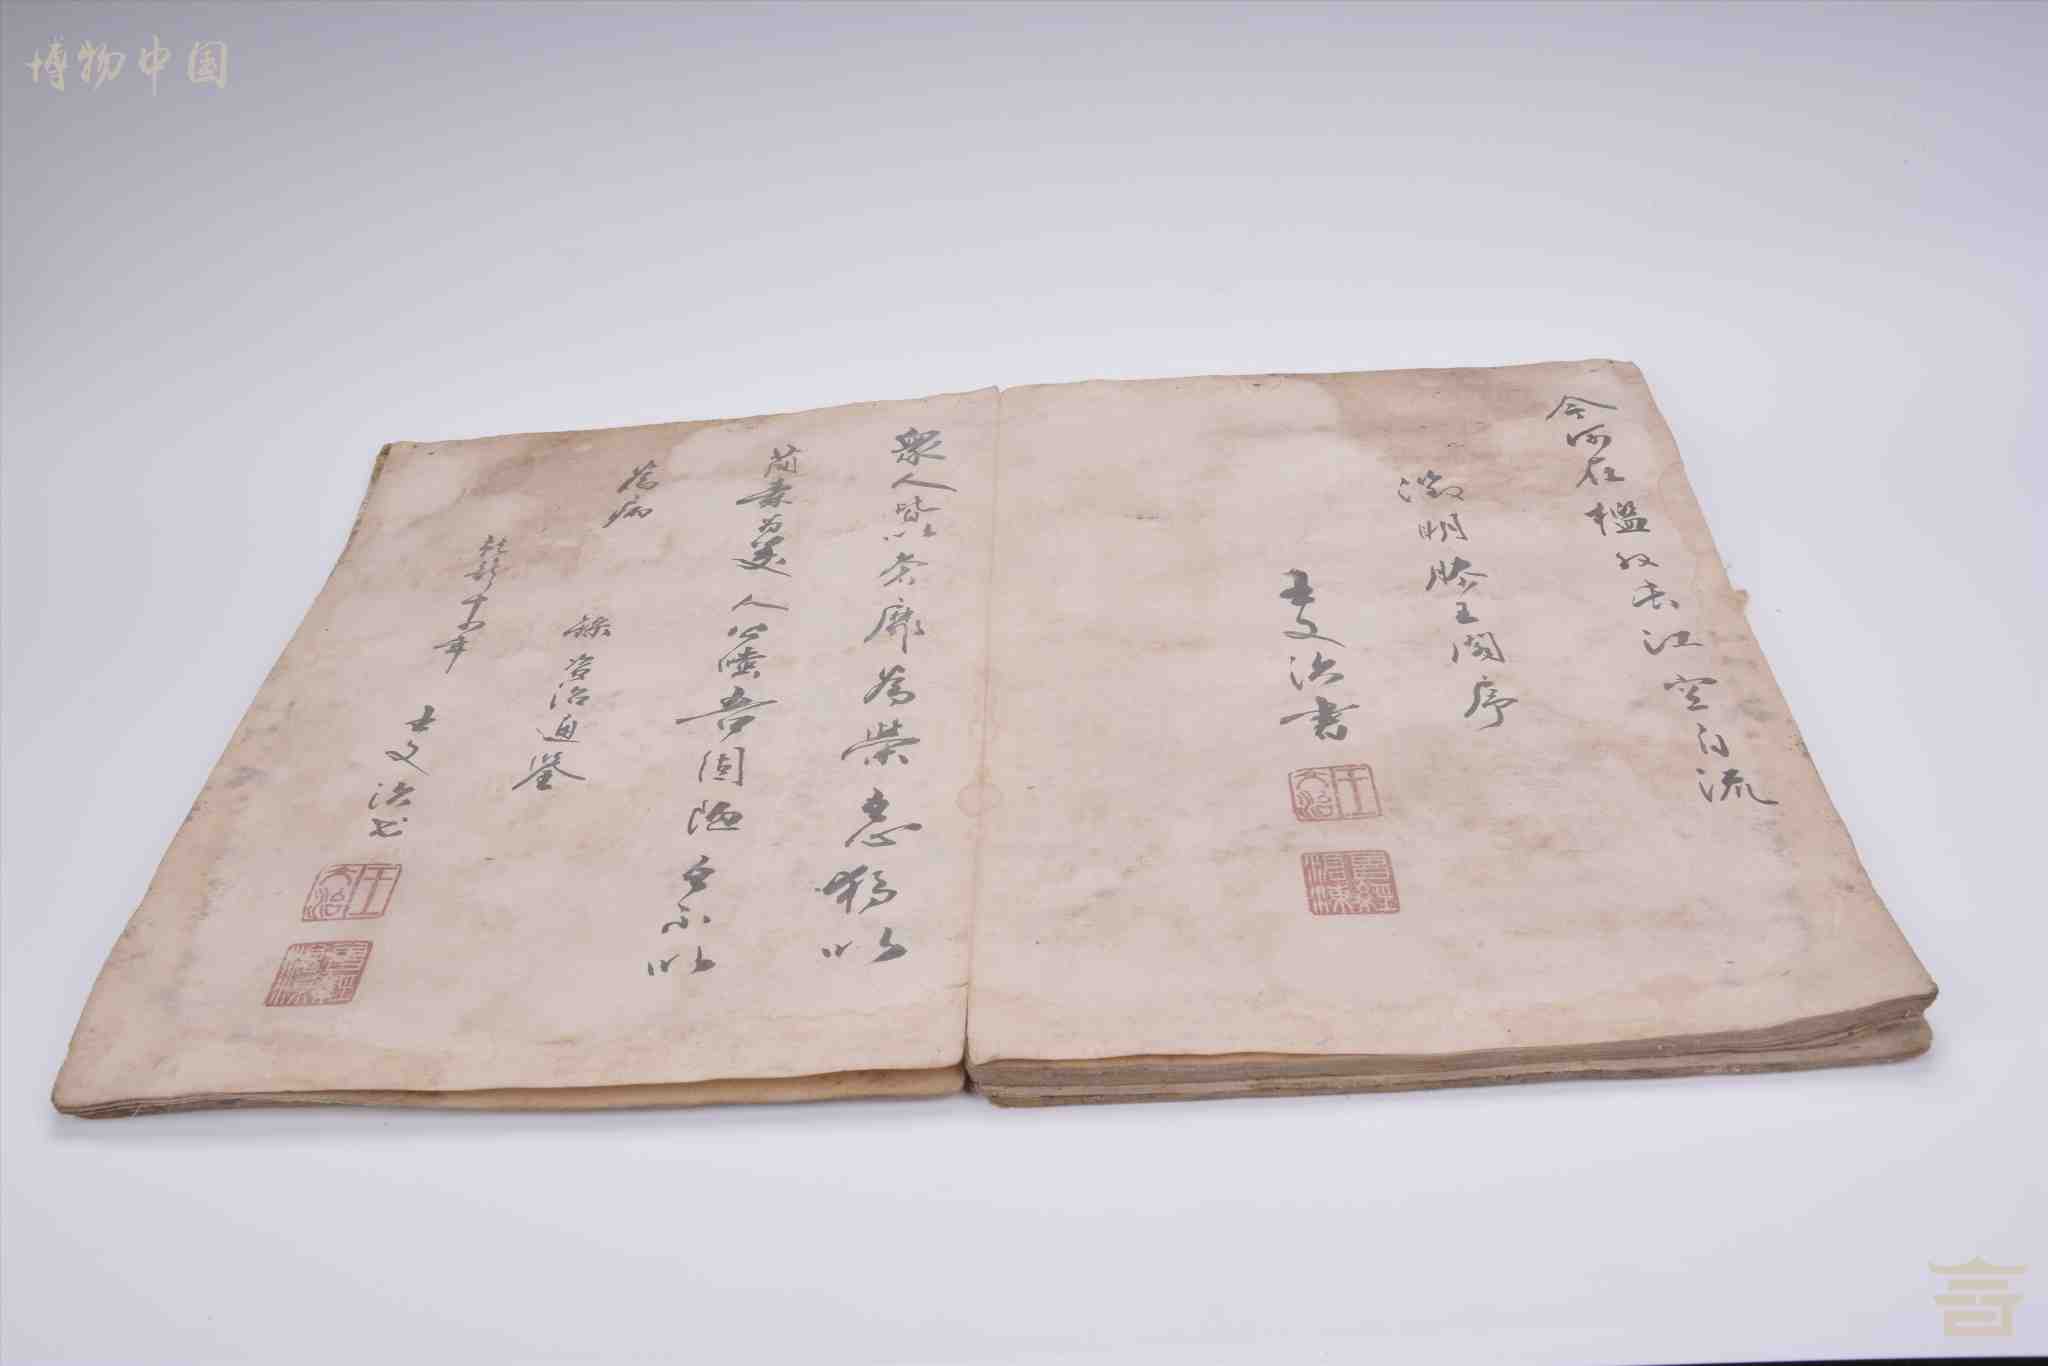 博物中国
今何在檻外長江空自流
徵明滕王閣序
王文治書
王文治
曾經滄海
衆人皆以奢靡為榮意獨以
簡素為美人公嗤吾固陋吾不以
為病
錄資治通鑒
乾隆十四年
王文治書
王文治